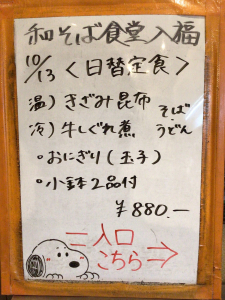 和そば食堂入福
10/13 <日替定食>
温) きざみ昆布 そば
冷) 牛しぐれ煮 うどん
・おにぎり(玉子)
・小鉢2品付
¥880.-
入口
こちら⇒